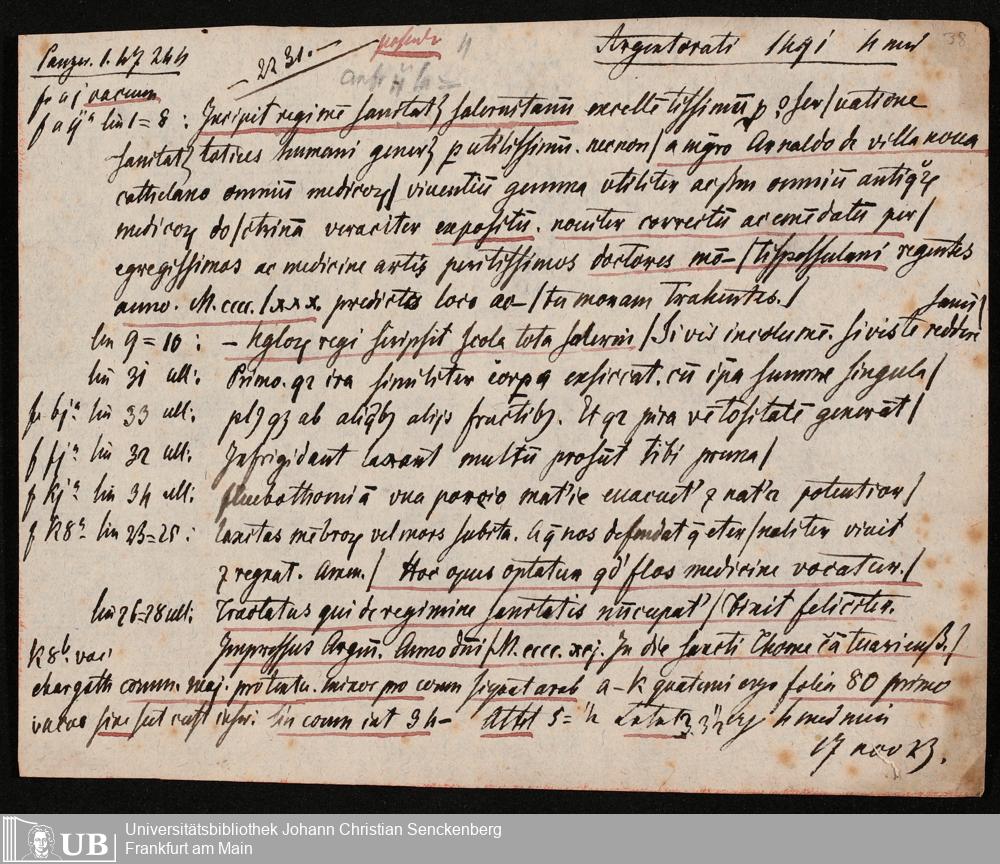 Panzer. 1. 47 244
22 31.
Argentorati 1491 4 med
38
f a j vacuum
f a ijª lin 1=8 : Incipit regimē sanitatꝫ salernitanū excellētissimū ꝓ ꝯser/vatione
sanitatꝫ totius humani generꝫ putilissimū. necnon/ a mgro Arnaldo de villa noua
cathelano omniū medicoꝝ/ viuentiū gemma vtiliter ac ẜm omniū antiqꝝ
medicoꝝ do/ctrinā veraciter expositū. nouiter correctū ac emēdatū per/
egregissimos ac medicine artis peritissimos doctores mō-/tispessulani regentes
anno. M.cccc./xxx. predicto loco ac-/tu moram trahentes./
lin 9=10 : - Agloꝝ regi scripsit scola tota salerni/ Si vis incolumē. si vis te reddere
sanū/
lin 31 ult: Primo. qꝛ ira similiter corpa exsiccat. cū ipa summe singula/
f bjª lin 33 ult: plꝫ qꝫ ab aliqbꝫ alijs fructibꝫ. Et qꝛ pira vētositatē generāt/
f fjª lin 32 ult: Infrigidant laxant multū prosūt tibi pruna/
f kjª lin 34 ult: fleubothomiā vna porcio mat'ie euacuet' ꝛ nat'a potentior/
f k8ª lin 23=25 : laxitas mēbroꝝ vel mors subita. A q nos defendat q eter/naliter viuit
ꝛ regnat. Amen./ Hoc opus optatur qd' flos medicine vocatur./
lin 26=28 ult: Tractatus qui de regimine sanitatis nūcupat'/ finit feliciter.
Impressus Argeñ. Anno dñi/ M.cccc.xcj. In die sancti Thome cātuarieñß./
k8ᵇ. vac'
char goth comm. maj. pro init. minor pro comm signat arab a-k quaterni ergo folia 80 primo
vacuo sine cust lin comm int 34- Altit 5= ½ Latit 3. 3½ 4 med min
17 nov 23.
Universitätsbibliothek Johann Christian Senckenberg
Frankfurt am Main
UB